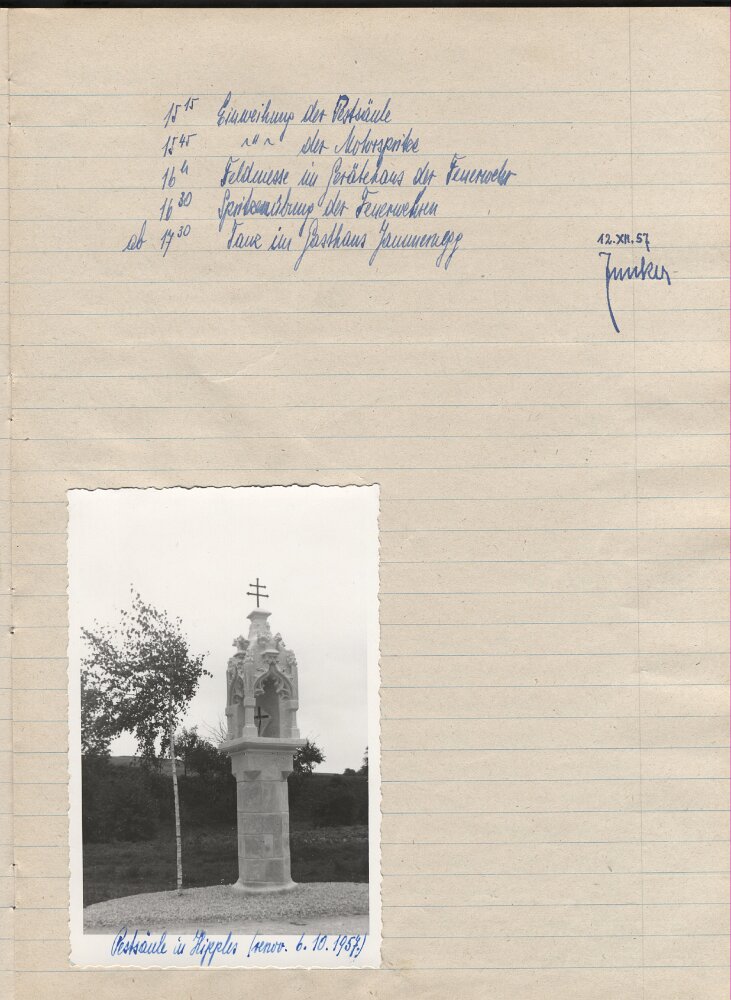 15 15 Einweihung der Pestsäule
15 45 ~ " ~ der Motorspritze
16 h Feldmesse im Gerätehaus der Feuerwehr
16 30 Spritzenübung der Feuerwehren
ab 17 30 Tanz im Gasthaus Jammeregg
12.XII.57
Junker
Pestsäule in Hipples (renov. 6.10.1957)